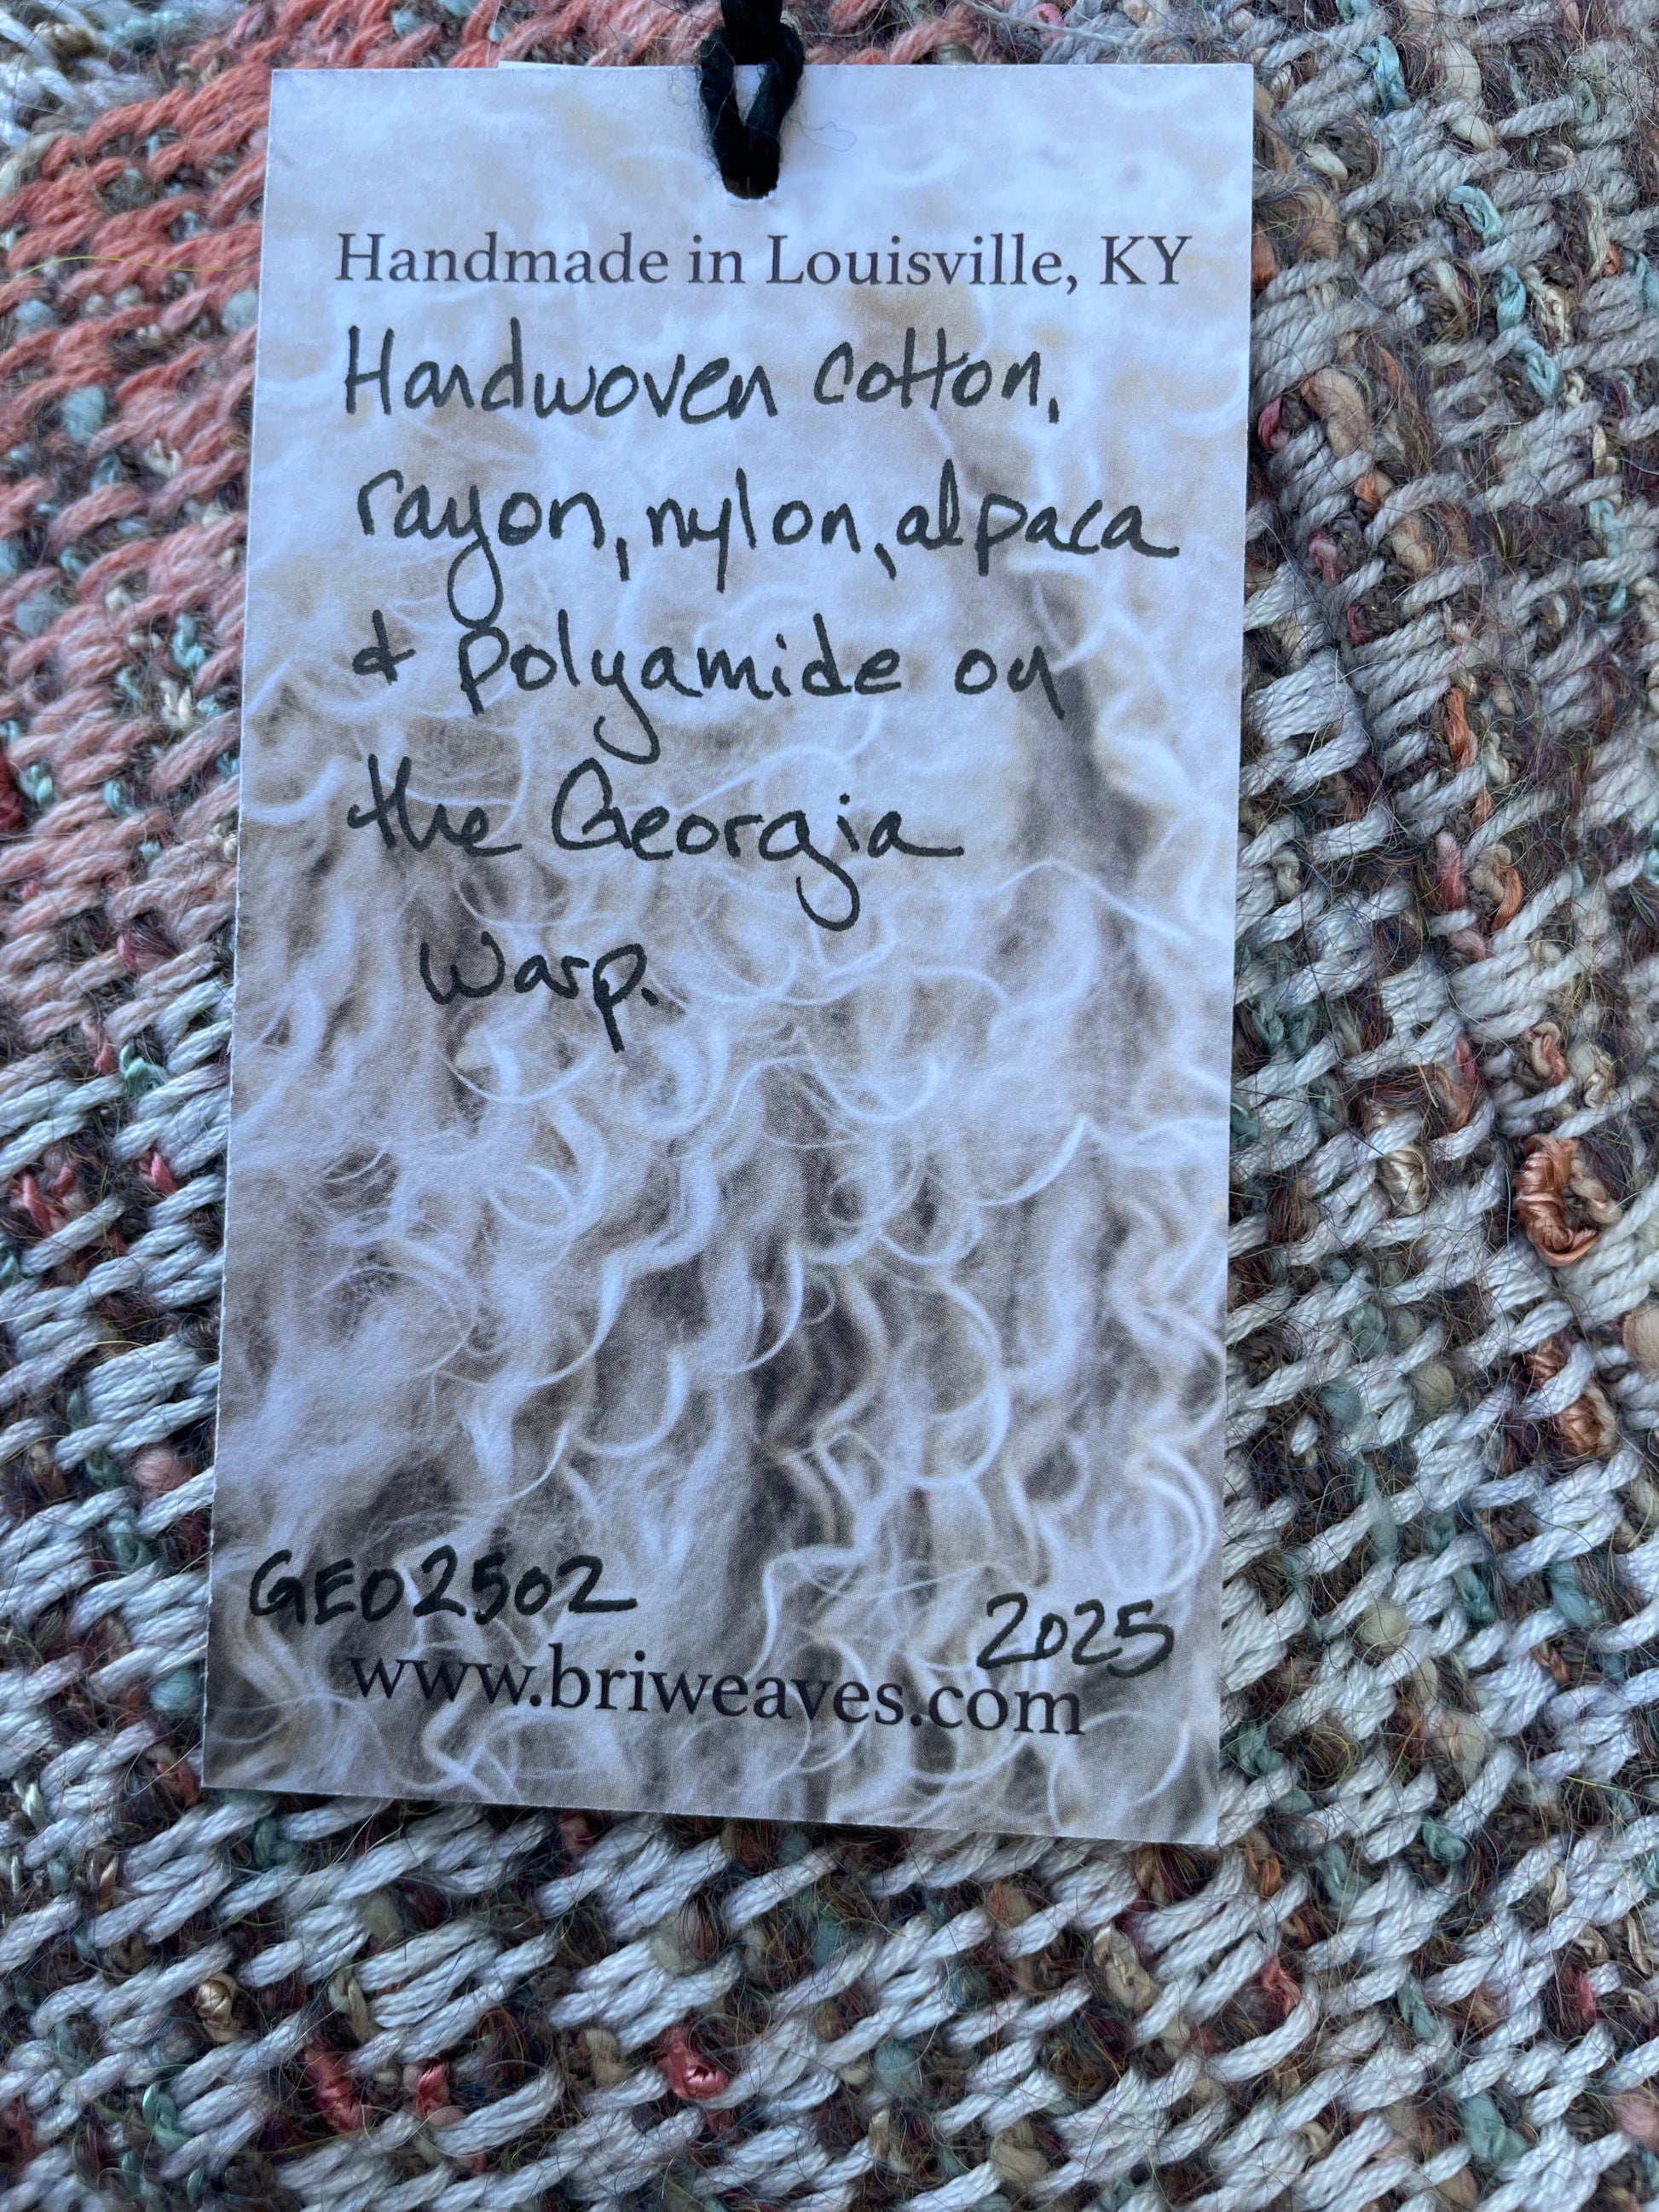 Handmade in Louisville, KY
Handwoven cotton,
rayon, nylon, alpaca
& polyamide on
the Georgia
Warp.
GEO2502
2025
www.briweaves.com